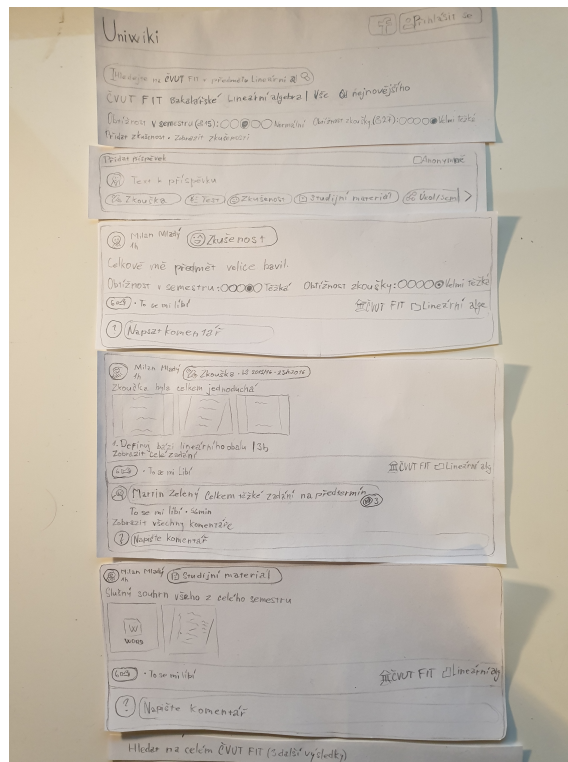 Uniwiki
Přihlásit se
Hledejte na ČVUT FIT v předmětu Lineární al
ČVUT FIT Bakalářské Lineární algebra | Vše Od nejnovějšího
Obtížnost v semestru Normální Obtížnost zkoušky Velmi těžká
Přidat zkušenost · Zobrazit zkušenosti
Přidat příspěvek Anonymně
Text k příspěvku
Zkouška Test Zkušenost Studijní materiál Úkol/Sem
Milan Mladý Zkušenost
1h
Celkově mě předmět velice bavil.
Obtížnost v semestru: Těžká Obtížnost zkoušky: Velmi těžká
· To se mi líbí ČVUT FIT Lineární alge
? Napsat komentář
Milan Mladý Zkouška
1h
Zkouška byla celkem jednoduchá
1. Definuj bázi lineárního obalu | 3b
Zobrazit celé zadání
· To se mi líbí ČVUT FIT Lineární alg
Martin Zelený Celkem těžké zadání na předtermín
3
To se mi líbí · 46min
Zobrazit všechny komentáře
? Napište komentář
Milan Mladý Studijní materiál
1h
Slušný souhrn všeho z celého semestru
W
WORD
· To se mi líbí ČVUT FIT Lineární alg
? Napište komentář
Hledat na celém ČVUT FIT (další výsledky)